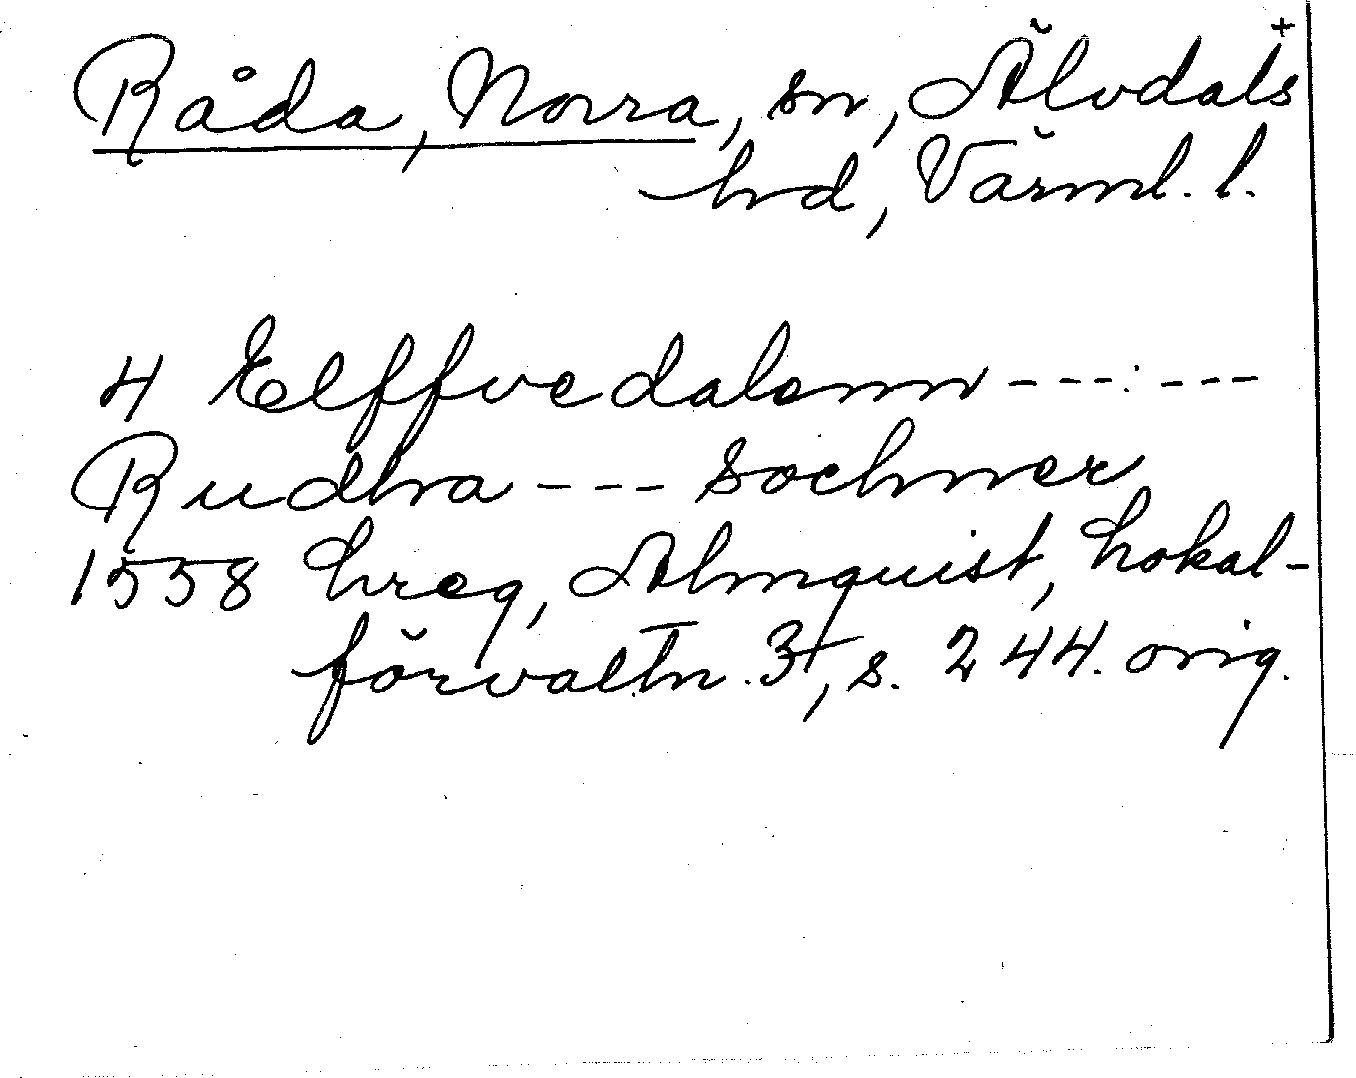 +
Råda, Norra, sn, Älvdals
hd, Värml. l.
4 Elffvedalenn --- ---
Rudha --- sochner
1558 hreg, Almquist, Lokal-
förvaltn. 3, s. 244. orig.